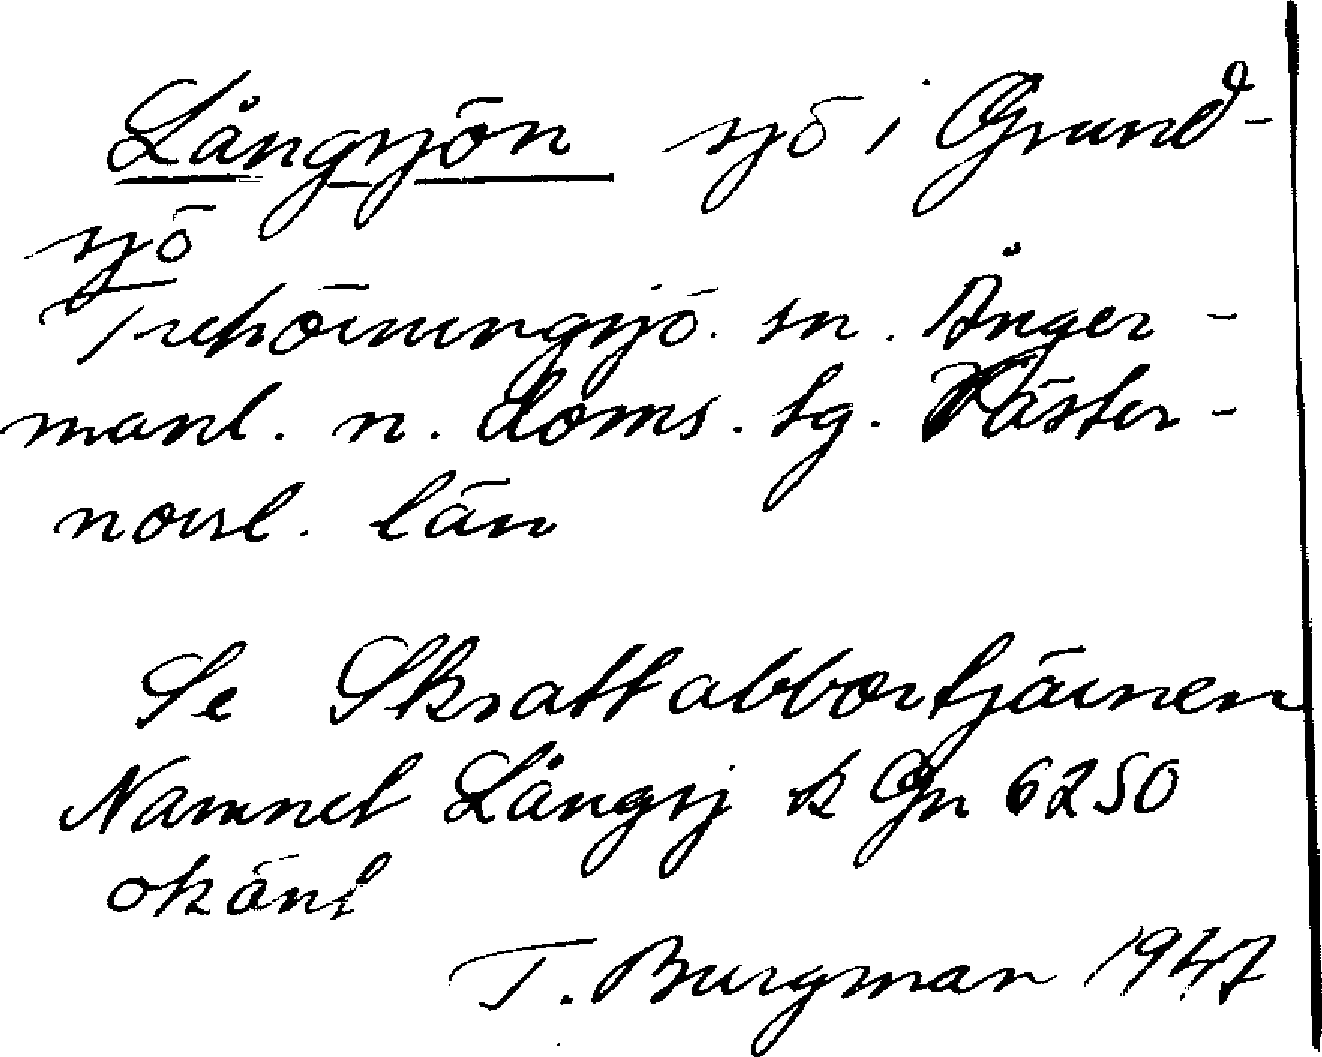 Långsjön sjö i Grund-
sjö
Trehörningsjö. sn. Ånger-
manl. n. doms. sg. Väster-
norrl. län
Se Skrattabborrtjärnen
Namnet Långsj k Gn 6250
okänt
T. Burgman 1947